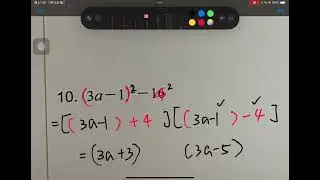 10. (3a−1)²−4²
=[(3a-1)+4][(3a-1)-4]
=(3a+3) (3a-5)